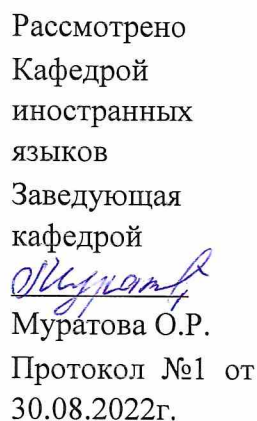 Рассмотрено
Кафедрой
иностранных
языков
Заведующая
кафедрой
Муратова О.Р.
Протокол №1 от
30.08.2022г.